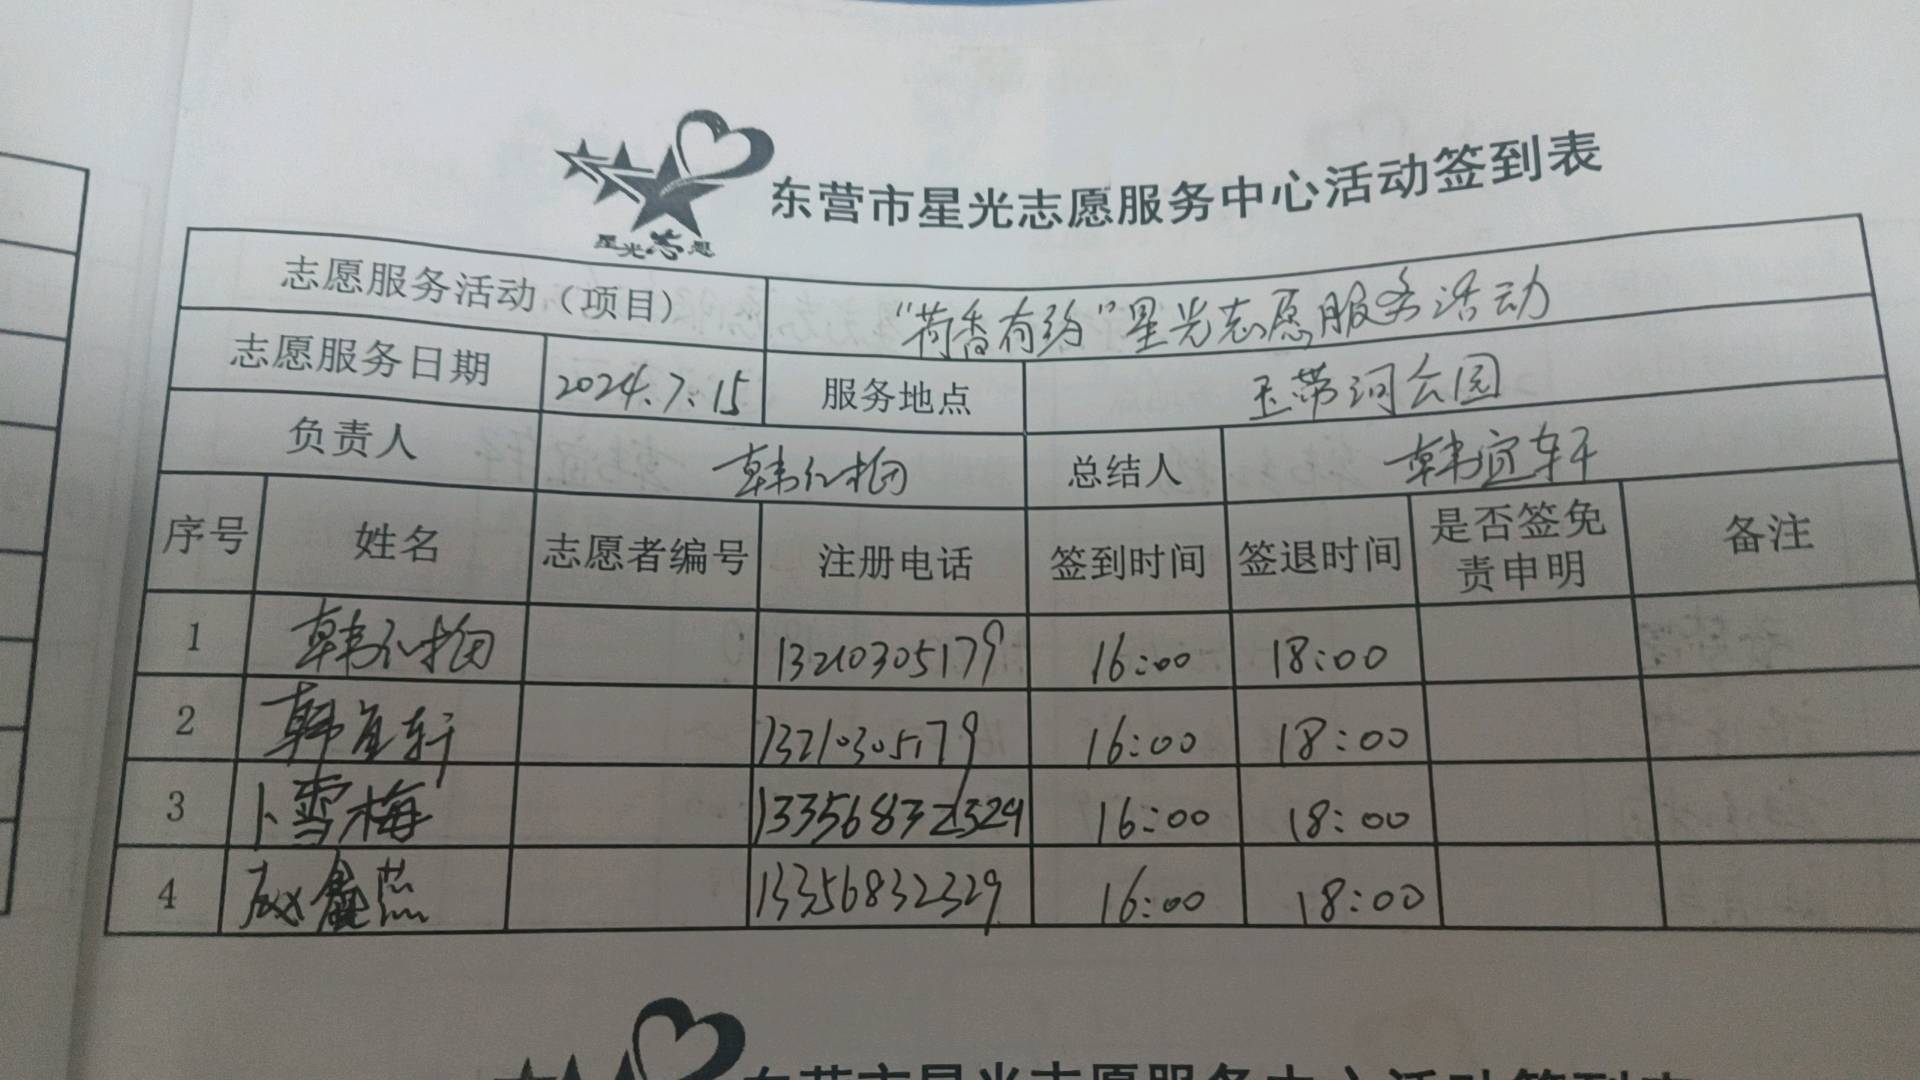 星光志愿
东营市星光志愿服务中心活动签到表
志愿服务活动（项目） “荷香有约”星光志愿服务活动
志愿服务日期 2024.7.15 服务地点 玉带河公园
负责人 韩红梅 总结人 韩宜轩
序号 姓名 志愿者编号 注册电话 签到时间 签退时间 是否签免责申明 备注
1 韩红梅 13210305179 16:00 18:00
2 韩宜轩 13210305179 16:00 18:00
3 卜雪梅 16:00 18:00
4 赵鑫燕 13356832329 16:00 18:00
东营市星光志愿服务中心活动签到表